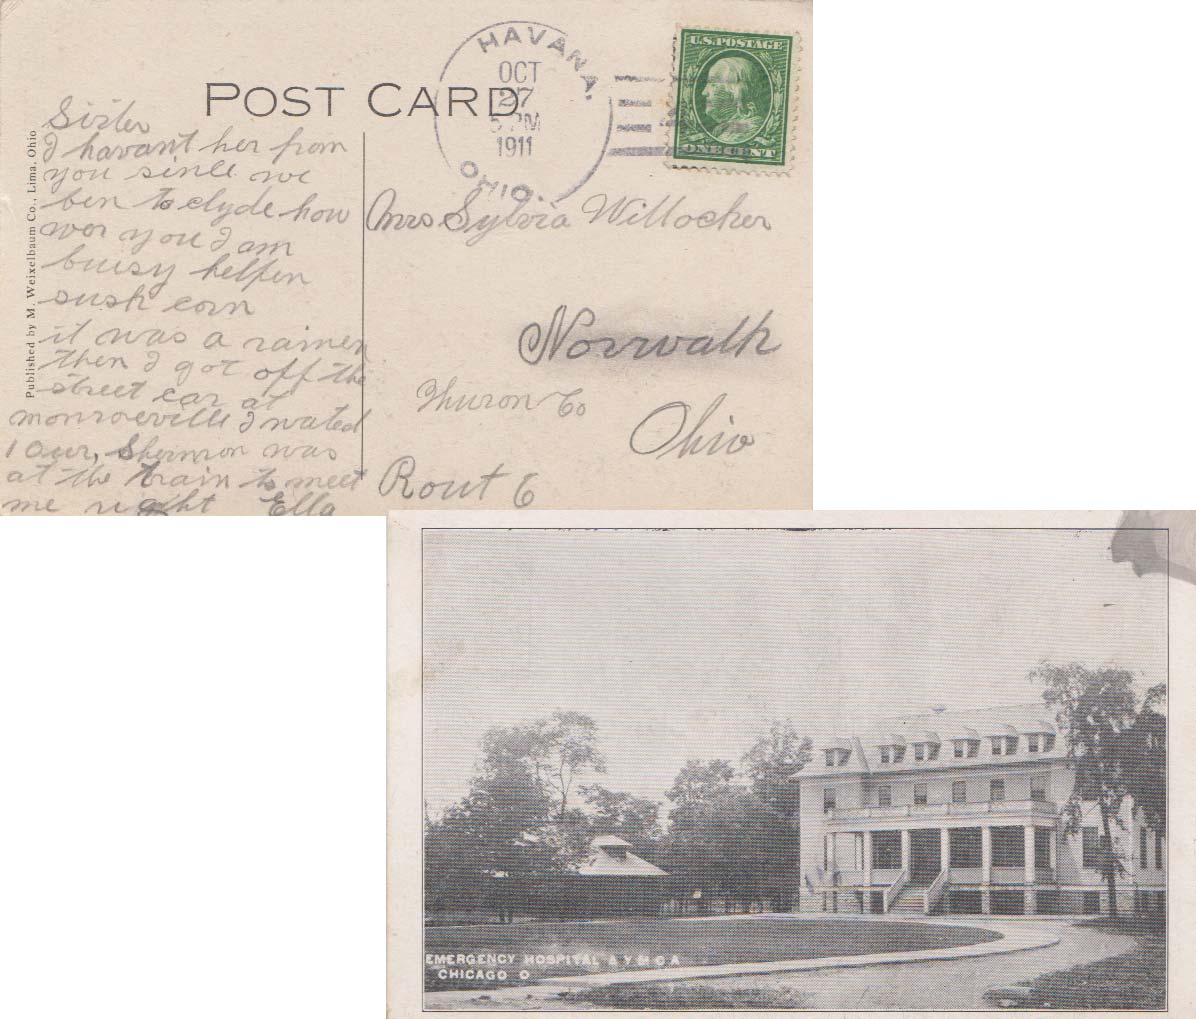 POST CARD
HAVANA,
OCT
27
5 PM
1911
OHIO.
U.S. POSTAGE
ONE CENT
Published by M. Weixelbaum Co., Lima, Ohio
Sister
I havant her from
you since we
ben to clyde how
wer you I am
buisy helpen
sush corn
it was a rainen
then I got off the
street car at
monroeville I wated
1 Our, Shermon was
at the train to meet
me right Ella
Mrs Sylvia Willocker
Norwalk
Huron Co
Ohio
Rout 6
EMERGENCY HOSPITAL & Y M C A
CHICAGO O